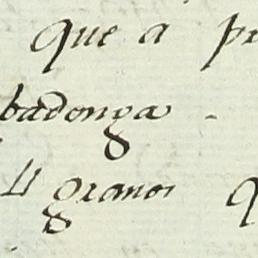 que a pr
badonga -
granos q